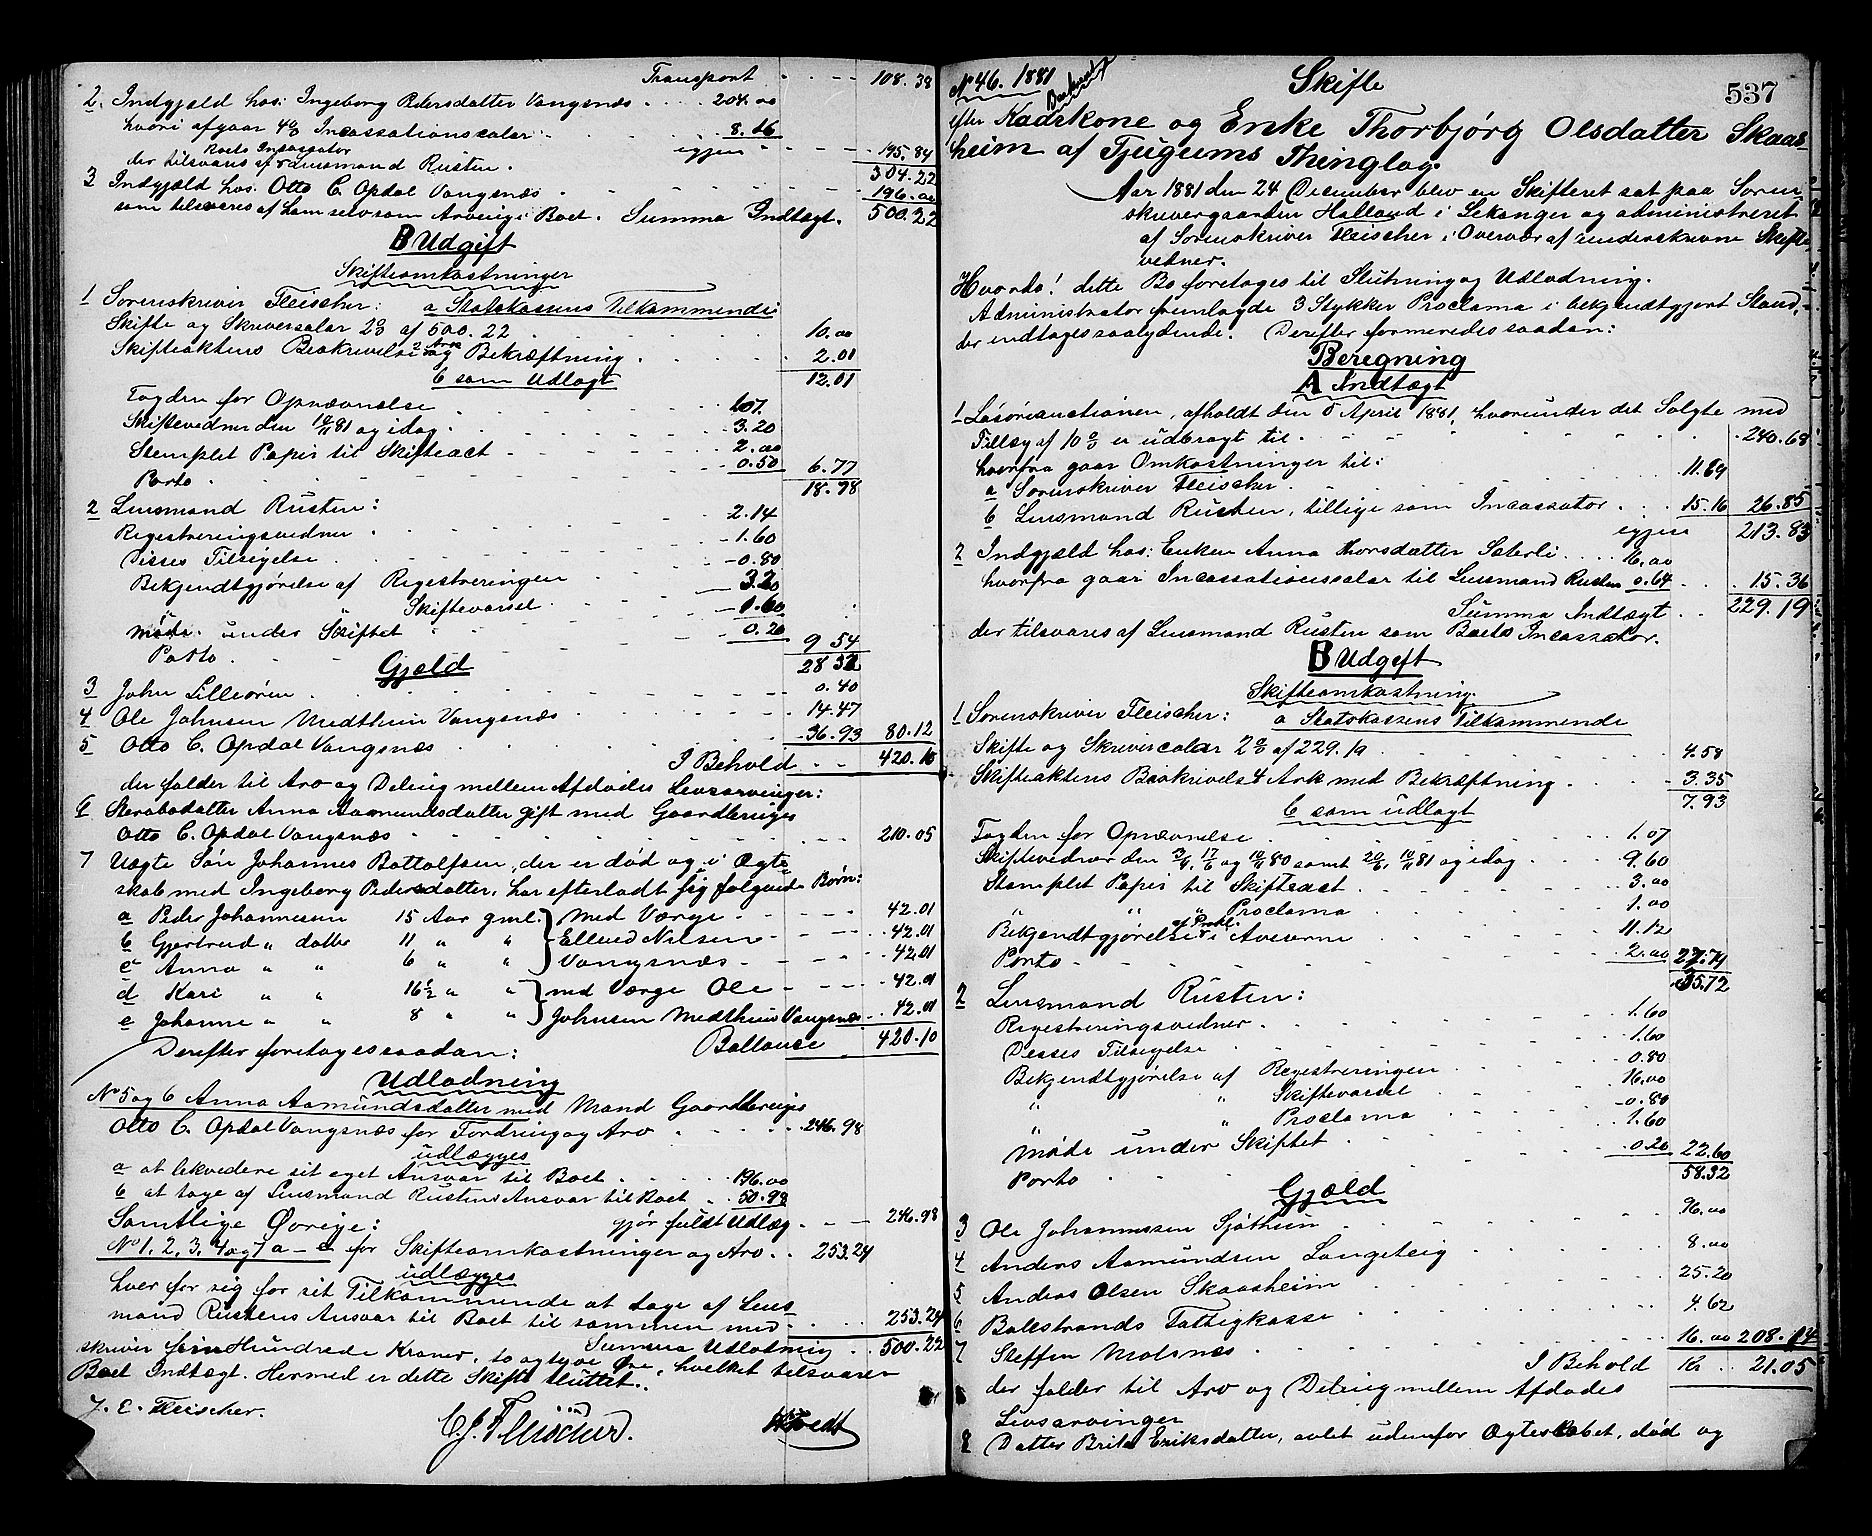 Transport 108.38
2. Indgjæld hos: Ingeborg Pedersdatter Vangsnæs 204.00
hvori afgaar 4% Incassationssalær 8.16
igjen 195.84
der tilsvares af Boets Incassator Lensmand Rusten. 304.22
3 Indgjæld hos: Otto C. Opdal Vangsnæs 196.00
som tilsvares af ham selv som Arving i Boet. Summa Indtægt. 500.22
B Udgift
Skifteomkostninger
1 Sorenskriver Fleischer: a Statskassens Tilkommende
Skifte og Skriversalær 2% af 500.22 10.00
Skifteaktens Beskrivelse 2 Ark og Bekræftning 2.01
12.01
b som Udlagt
Fogden for Opnævnelse 1.07
Skiftevedner den 10/11 81 og idag 3.20
Stemplet Papir til Skifteact 2.00
Porto 0.50 6.77
18.78
2 Lensmand Rusten:
2.14
Registreringsvedner 1.60
Disses Tilsigelse 0.80
Bekjendtgjørelse af Registreringen 3.20
" " Skiftevarsel 1.60
Møde under Skiftet 0.20
Porto 9 54
28 32
Gjæld
3 John Lilleøren 0.40
4 Ole Johnsen Medthun Vangsnæs 14.47
5 Otto C. Opdal Vangsnæs 36.93 80.12
I Behold 420.10
der falder til Arv og Deling mellem Afdødes Livsarvinger:
6 Sterabsdatter Anna Aamundsdatter gift med Gaardbruger
Otto C. Opdal Vangsnæs 210.05
7 Uægte Søn Johannes Bottolfsen, der er død og i Ægte-
skab med Ingeborg Pedersdatter, har efterladt sig følgende Børn:
a Peder Johannessen 15 Aar gml. med Værge 42.01
b Gjertrud " datter 11 " " Ellend Nilsen 42.01
c Anna " " 6 " " Vangsnæs 42.01
d Kari " " 16 1/2 " " med Værge Ole 42.01
e Johanne " " 8 " " Johnsen Medthun Vangsnæs 42.01
Derefter foretages saadan: Ballance 420.10
Udlodning
No 5 og 6 Anna Aamundsdatter med Mand Gaardbruger
Otto C. Opdal Vangsnæs for Fordring og Arv 246.98
udlægges
a at likvidere sit eget Ansvar til Boet 196.00
b at tage af Lensmand Rustens Ansvar til Boet 50.98
gjør fuldt Udlæg 246.98
Samtlige Øvrige:
No 1, 2, 3, 4 og 7 a-e for Skifteomkostninger og Arv 253.24
udlægges
hver for sig for sit Tilkommende at tage af Lens-
mand Rustens Ansvar til Boet til sammen med 253.24
Summa Udlodning 500.22
skriver fem Hundrede Kroner, to og tyve Øre, hvilket tilsvarer
Boets Indtægt. Hermed er dette Skifte sluttet.
J. E. Fleischer. C. J. Fleischer.
No 46. 1881 Skifte 537
efter Kadskone og Enke Thorbjørg Olsdatter Skaas-
heim af Tjugums Thinglag.
Aar 1881 den 24 December blev en Skifteret sat paa Soren-
skrivergaarden Halland i Lekanger og administreret
af Sorenskriver Fleischer i Overvær af underskrevne Skifte-
vedner.
Hvorda! dette Bo foretoges til Slutning og Udlodning.
Administrator fremlagde 3 Stykker Proclama i bekjendtgjort Stand,
der indtages saalydende. Derefter formeredes saadan:
Beregning
A Indtægt
1 Løsøreauctionen, afholdt den 5 April 1881, hvorunder det Solgte med
Tillæg af 10% er udbragt til 240.68
hvorfra gaar Omkostninger til:
a Sorenskriver Fleischer 11.69
b Lensmand Rusten, tillige som Incassator 15.16 26.85
igjen 213.83
2 Indgjæld hos: Enken Anna Thorsdatter Sæterli 16.00
hvorfra gaar Incassationssalær til Lensmand Rusten 0.64 15.36
Summa Indtægt 229.19
der tilsvares af Lensmand Rusten som Boets Incassator.
B Udgift
Skifteomkostning
1 Sorenskriver Fleischer: a Statskassens Tilkommende
Skifte og Skriversalær 2% af 229.19 4.58
Skifteaktens Beskrivels 4 Ark med Bekræftning 3.35
7.93
b som udlagt
Fogden for Opnævnelse 1.07
Skiftevedner den 3/4, 17/6 og 10/11 80 samt 20/6, 10/11 81 og idag 9.60
Stemplet Papir til Skifteact 3.00
" " " Proclama 1.00
Bekjendtgjørelse af Prokl. i Aviserne 11.12
Porto 2.00 27.79
35.72
2 Lensmand Rusten:
Registreringsvedner 1.60
Disses Tilsigelse 1.60
Bekjendtgjørelse af Registreringen 0.80
" " Skiftevarsel 16.00
" " Proclama 0.80
Møde under Skiftet 1.60
Porto 0.20 22.60
58.32
Gjæld
3 Ole Johannessen Sjøthun 96.00
4 Anders Aamundsen Langeteig 8.00
5 Anders Olsen Skaasheim 25.20
6 Balestrands Fattigkasse 4.62
7 Steffen Molsnæs 16.00 208.14
I Behold Kr 21.05
der falder til Arv og Deling mellem Afdødes
Livsarvinger
8 Datter Brite Eriksdatter, avlet udenfor Ægteskabet, død og